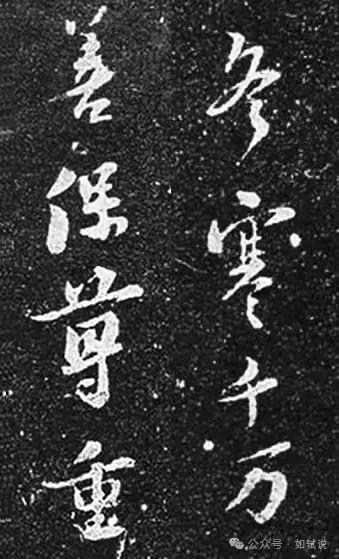 冬寒千万
善保尊重
公众号·如弑说